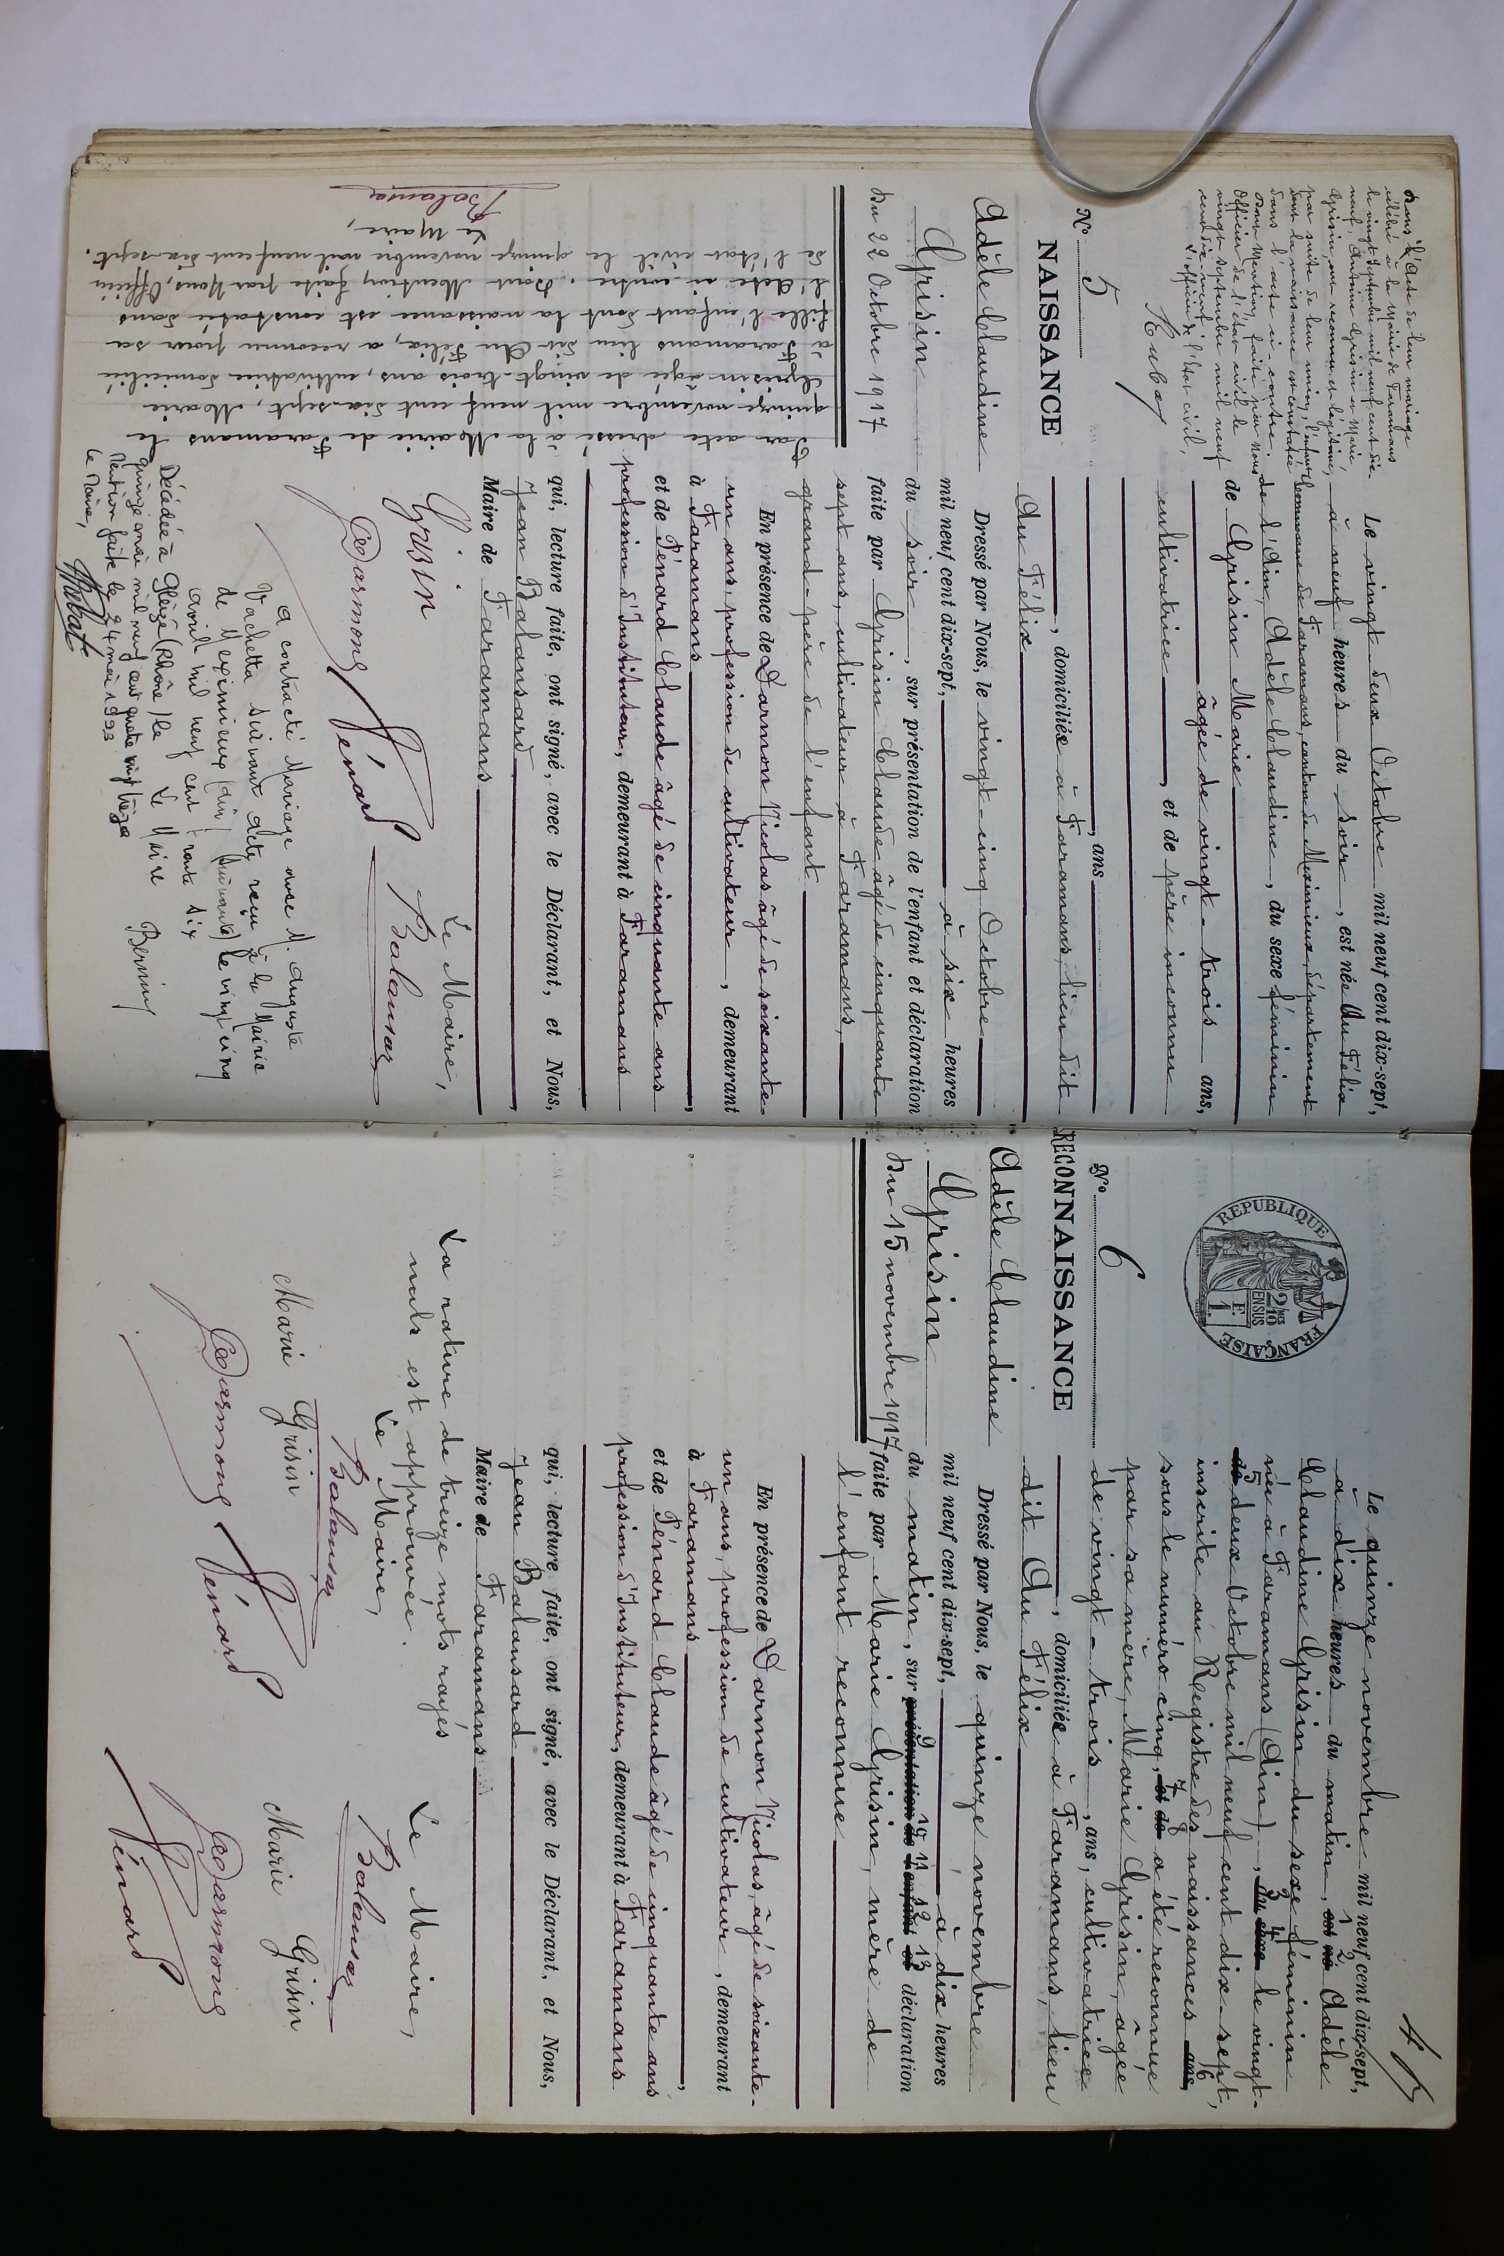 Dans l'Acte de leur mariage
célébré à la Mairie de Faramans
le vingt septembre mil neuf cent dix-
neuf, Antoine Grisin et Marie
Grisin, ont reconnu et légitimé,
par suite de leur union, l'enfant
dont la naissance est constatée
dans l'acte ci-contre.
Dont Mention faite par Nous
Officier de l'état civil le
vingt septembre mil neuf
cent dix-neuf.
L'officier de l'état civil,
N° 5
NAISSANCE
Adèle Claudine
Grisin
Du 22 Octobre 1917
Par acte dressé à la Mairie de Faramans le
quinze novembre mil neuf cent dix-sept, Marie
Grisin âgée de vingt-trois ans, cultivatrice domiciliée
à Faramans lieu dit Au Félix, a reconnu pour sa
fille l'enfant dont la naissance est constatée dans
l'Acte ci-contre. Dont Mention faite par Nous, Officier
de l'état civil le quinze novembre mil neuf cent dix-sept.
Le Maire,
Balansard
Le vingt-deux Octobre mil neuf cent dix-sept,
à neuf heures du soir, est née Au Félix
Commune de Faramans, canton de Meximieux, département
de l'Ain, Adèle Claudine, du sexe féminin
de Grisin Marie
âgée de vingt-trois ans,
cultivatrice, et de père inconnu
, ans
, domiciliée à Faramans, lieu dit
Au Félix
Dressé par Nous, le vingt-cinq Octobre
mil neuf cent dix-sept, à six heures
du soir, sur présentation de l'enfant et déclaration
faite par Grisin Claude âgé de cinquante
sept ans, cultivateur à Faramans,
grand-père de l'enfant
En présence de Darmon Nicolas âgé de soixante
un ans, profession de cultivateur, demeurant
à Faramans,
et de Pénard Claude âgé de cinquante ans
profession d'Instituteur, demeurant à Faramans
qui, lecture faite, ont signé, avec le Déclarant, et Nous,
Jean Balansard
Maire de Faramans
Le Maire,
Grisin Balansard
Darmon Pénard
a contracté Mariage avec M. Auguste
Vachetta suivant acte reçu à la Mairie
de Meximieux (Ain) le vingt cinq
avril mil neuf cent trente six
Le Maire
Décédée à Gleizé (Rhône) le
quinze mai mil neuf cent quatre vingt treize
Mention faite le 24 mai 1993
Le Maire,
4
RÉPUBLIQUE FRANÇAISE
2/10 EN SUS
1 F.
N° 6
RECONNAISSANCE
Adèle Claudine
Grisin
Du 15 novembre 1917
Le quinze novembre mil neuf cent dix-sept,
à dix heures du matin, est né Adèle
Claudine Grisin du sexe féminin
née à Faramans (Ain), du sexe le vingt-
de deux Octobre mil neuf cent dix-sept,
inscrite au Registre des naissances ans,
sous le numéro cinq, et de a été reconnue
par sa mère, Marie Grisin, âgée
de vingt-trois, ans, cultivatrice
, domiciliée à Faramans, lieu
dit Au Félix
Dressé par Nous, le quinze novembre
mil neuf cent dix-sept, à dix heures
du matin, sur présentation de l'enfant et déclaration
faite par Marie Grisin, mère de
l'enfant reconnue
En présence de Darmon Nicolas, âgé de soixante-
un ans, profession de cultivateur, demeurant
à Faramans,
et de Pénard Claude âgé de cinquante ans
profession d'Instituteur, demeurant à Faramans
qui, lecture faite, ont signé, avec le Déclarant, et Nous,
Jean Balansard
Maire de Faramans
La rature de treize mots rayés
nuls est approuvée.
Le Maire,
Balansard
Marie Grisin
Darmon Pénard
Le Maire,
Balansard
Marie Grisin
Darmon
Pénard